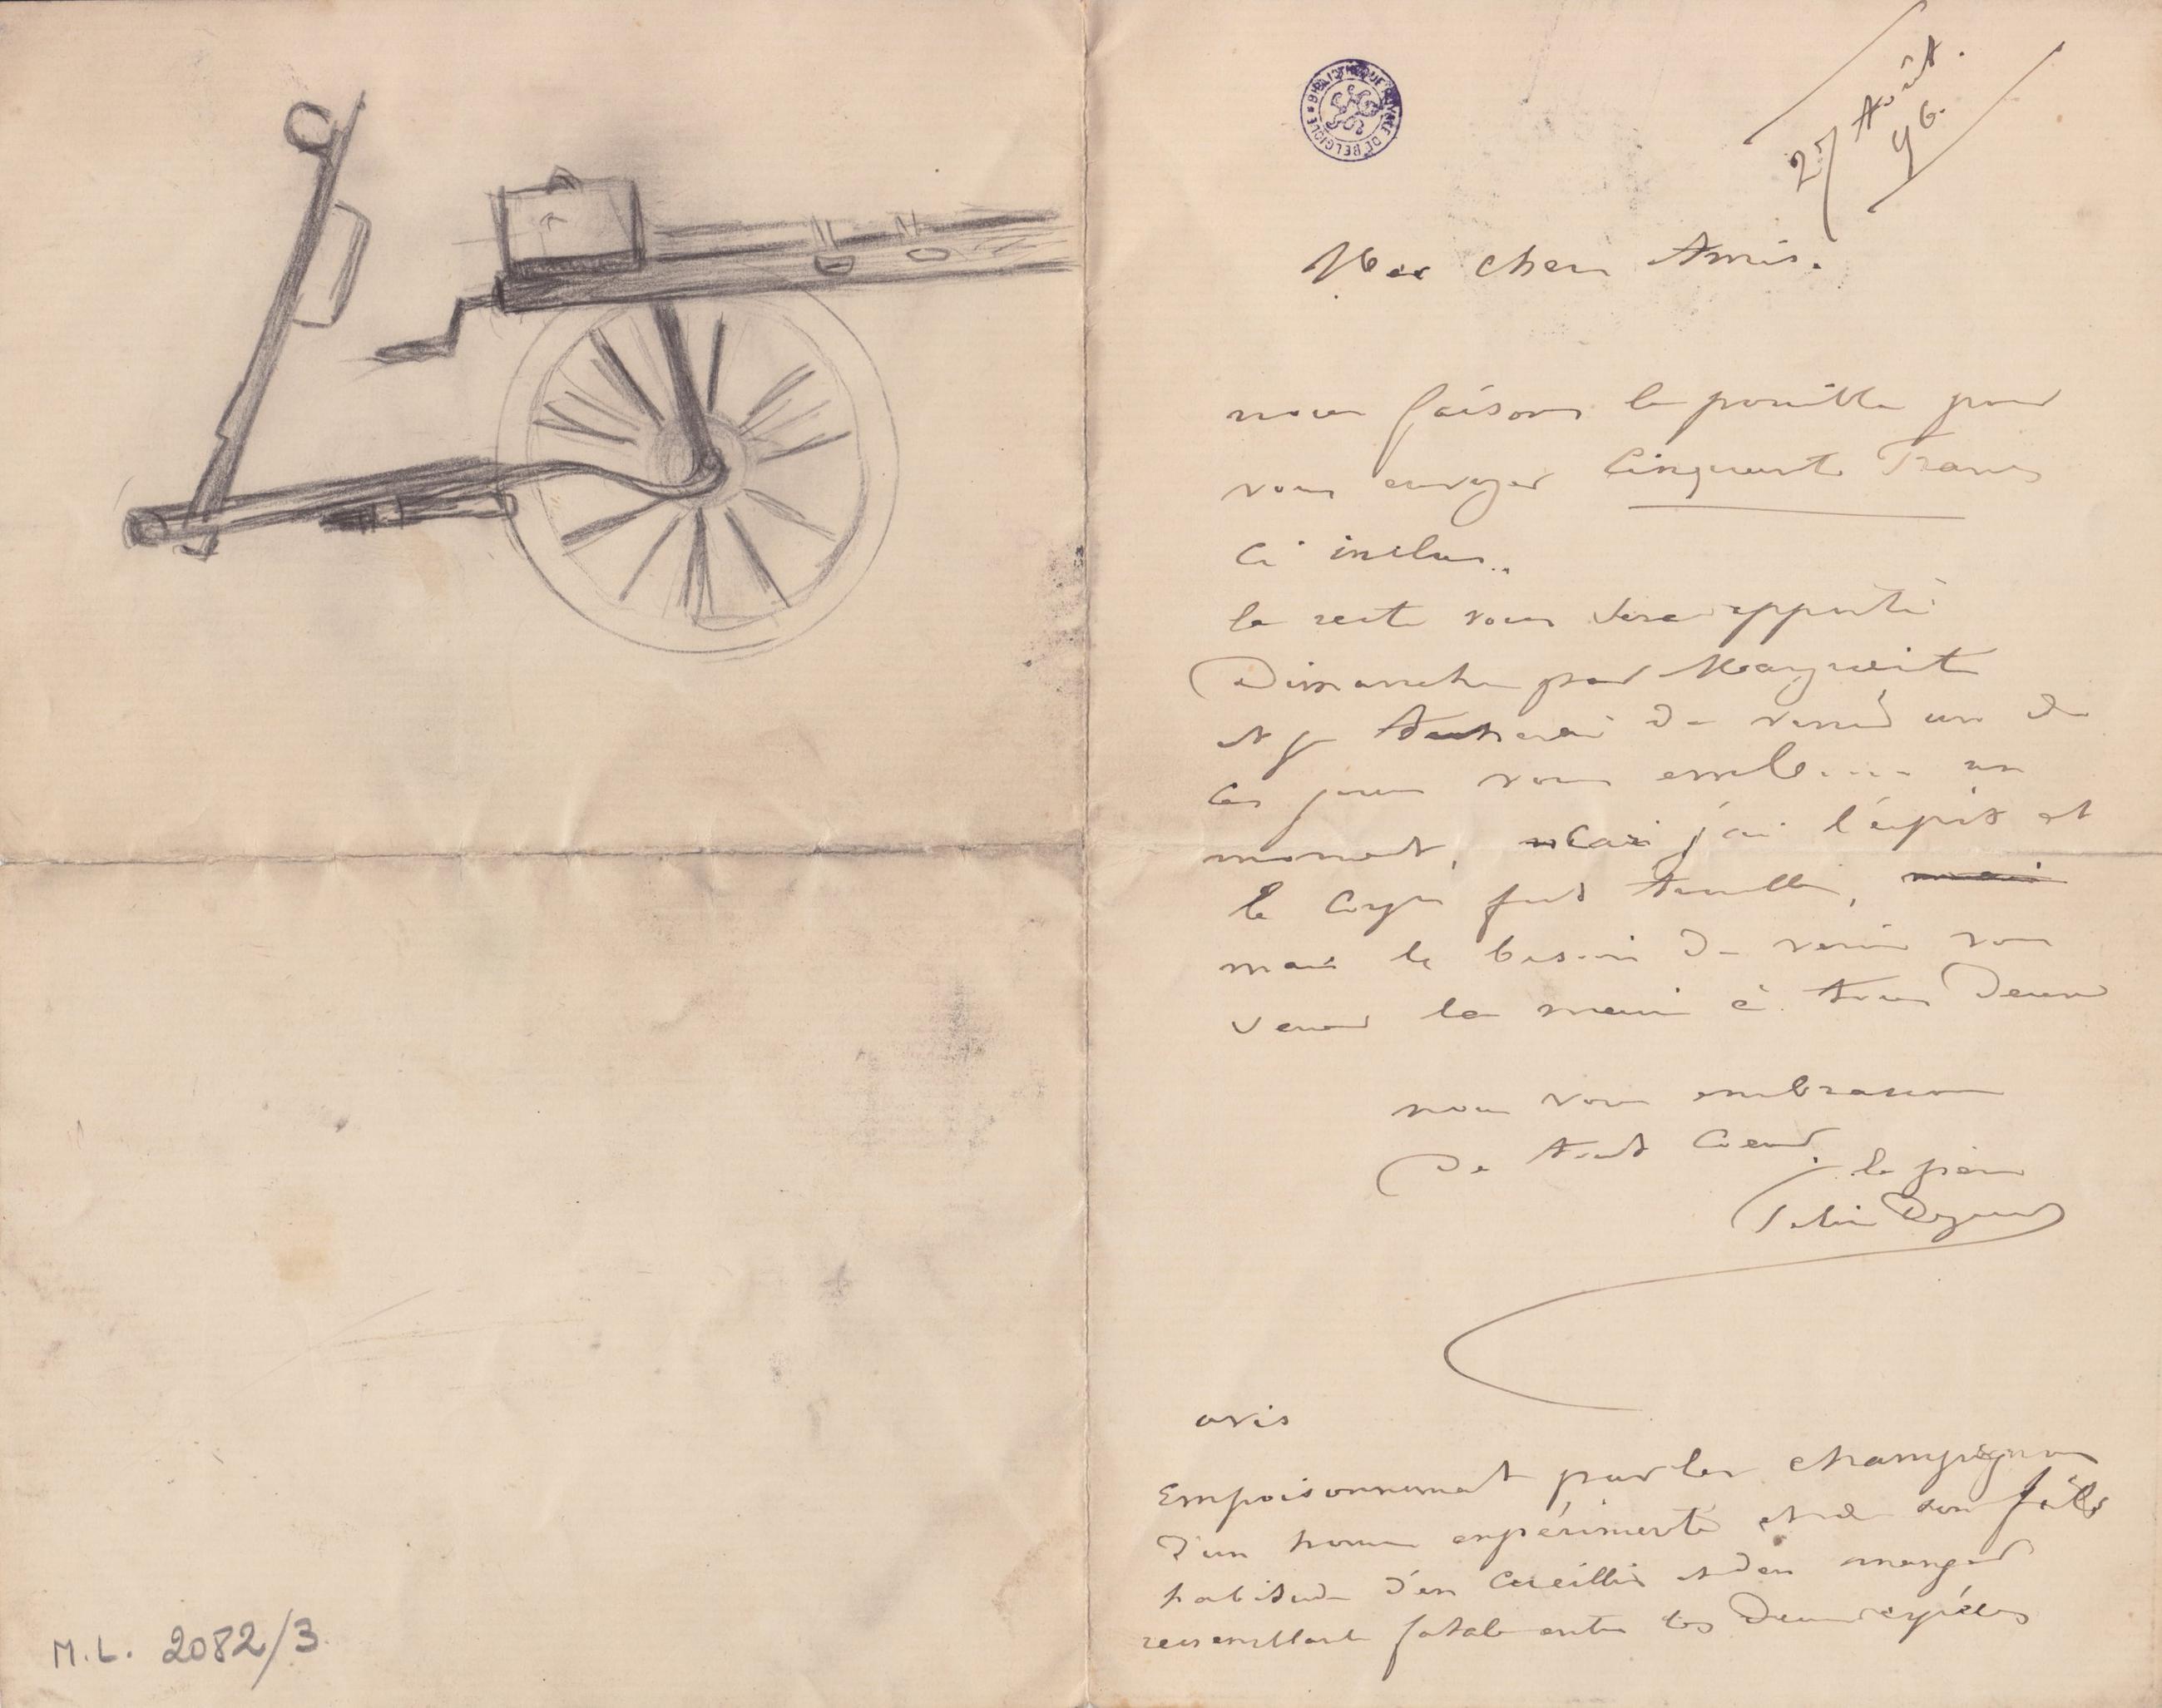 27 Août.
96.
Mes chers Amis.
nous faisons le possible pour
vous envoyer Cinquante Francs
Ci inclus..
le reste vous sera apporté
Dimanche par Marguerite
et je tacherai de venir un de
ces jours vous emb.... un
moment, car j'ai l'esprit et
le corps fort
mais le besoin de venir vous
la main à tous deux
nous vous embrassons
De tout Coeur.
le père
avis
Empoisonnement par les champignons
d'un homme expérimenté et de son fils
habitude d'en cueillir et d'en manger
ressemblance fatale entre les Deux espèces
BIBLIOTHEQUE ROYALE DE BELGIQUE
M.L. 2082/3